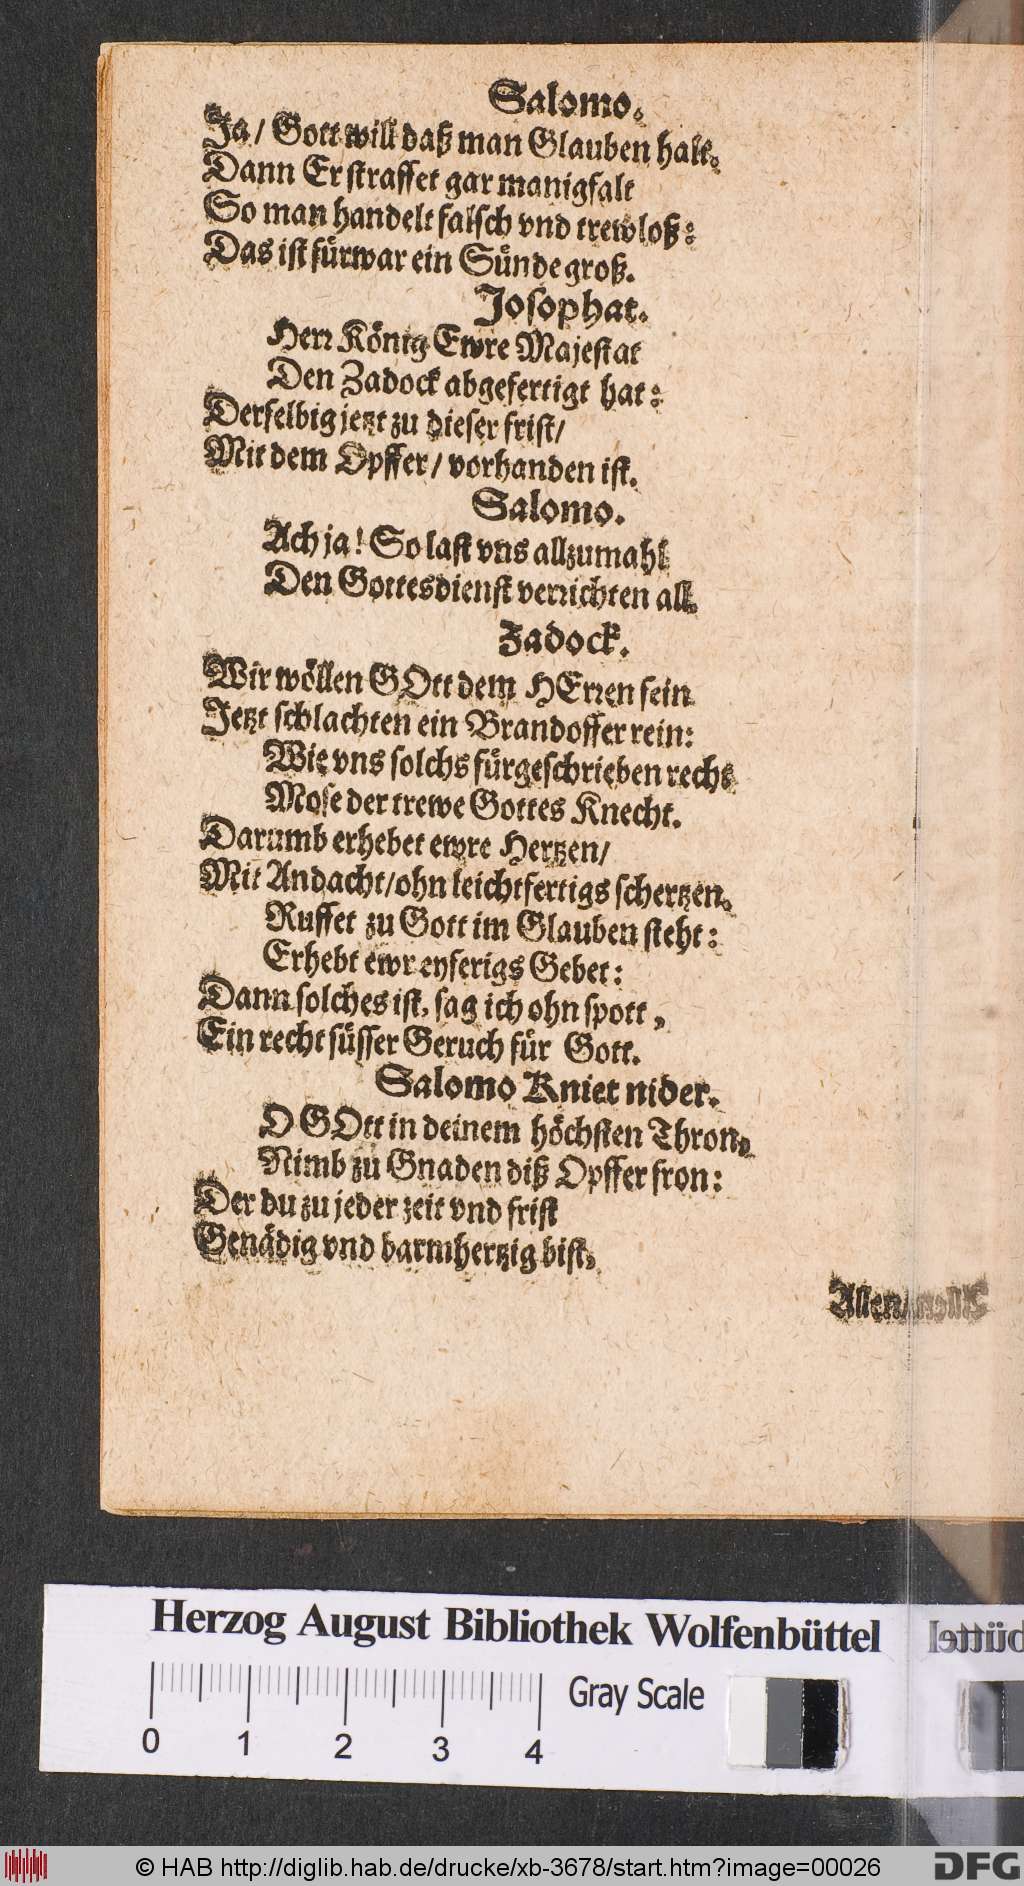 Salomo.
Ja / Gott will daß man Glauben halt.
Dann Er straffet gar manigfalt
So man handelt falsch vnd trewloß:
Das ist fürwar ein Sünde groß.
Josophat.
Herr König Ewre Majestat
Den Zadock abgefertigt hat:
Derselbig jetzt zu dieser frist /
Mit dem Opffer / vorhanden ist.
Salomo.
Ach ja! So last vns allzumahl
Den Gottesdienst verrichten all.
Zadock.
Wir wöllen GOtt dem HErren sein
Jetzt schlachten ein Brandoffer rein:
Wie vns solchs fürgeschrieben recht
Mose der trewe Gottes Knecht.
Darumb erhebet ewre Hertzen /
Mit Andacht / ohn leichtfertigs schertzen.
Ruffet zu Gott im Glauben steht:
Erhebt ewr eyferigs Gebet:
Dann solches ist, sag ich ohn spott,
Ein recht süsser Geruch für Gott.
Salomo Kniet nider.
O GOtt in deinem höchsten Thron,
Nimb zu Gnaden diß Opffer fron:
Der du zu jeder zeit vnd frist
Genädig vnd barmhertzig bist,
Allen
Herzog August Bibliothek Wolfenbüttel
Gray Scale
0 1 2 3 4
© HAB http://diglib.hab.de/drucke/xb-3678/start.htm?image=00026
DFG